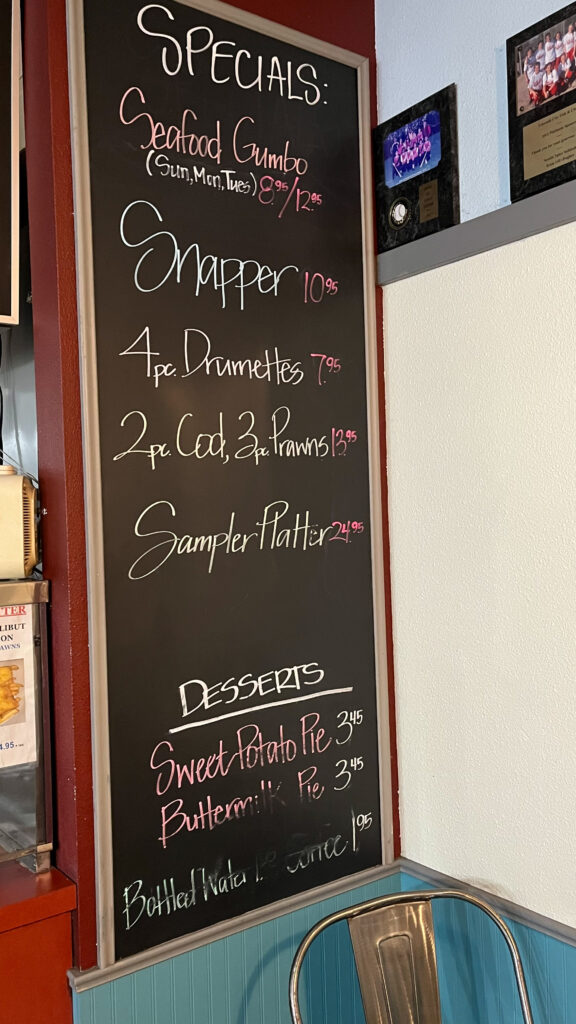 SPECIALS:
Seafood Gumbo
(Sun, Mon, Tues) 8.95/12.95
Snapper 10.95
4pc. Drumettes 7.95
2pc. Cod, 3pc. Prawns 13.95
Sampler Platter 24.95
DESSERTS
Sweet Potato Pie 3.45
Buttermilk Pie 3.45
Bottled Water Coffee 1.95
TTER
LIBUT
ON
AWNS
4.95